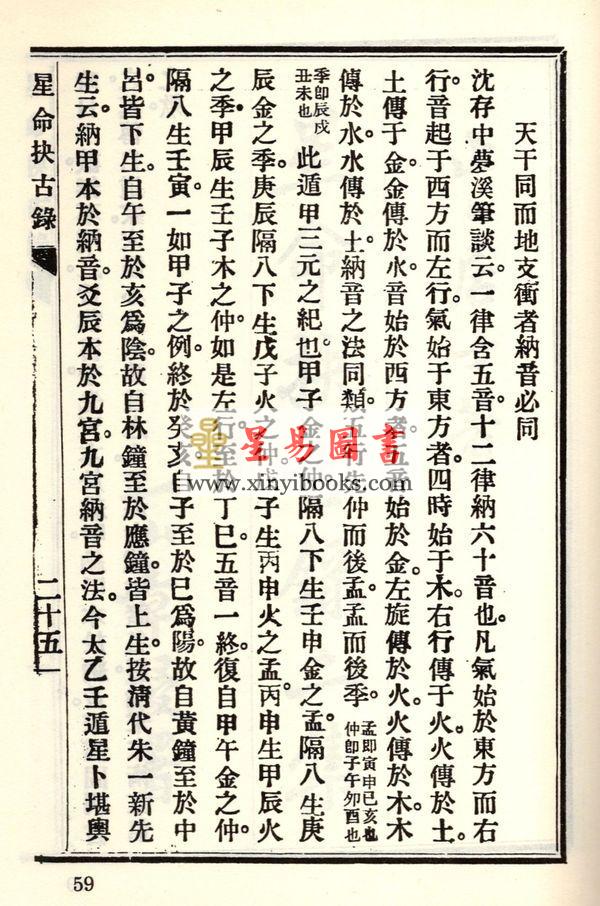 天干同而地支衝者納音必同
沈存中夢溪筆談云。一律含五音。十二律納六十音也。凡氣始於東方而右
行。音起于西方而左行。氣始于東方者。四時始于木。右行傳于火。火傳於土。
土傳于金。金傳於水。音始於西方者。五音始於金。左旋傳於火。火傳於木。木
傳於水。水傳於土。納音之法同類。五行先仲而後孟。孟而後季。孟即寅申巳亥也仲即子午卯酉也
季即辰戌丑未也此遁甲三元之紀也。甲子金之仲。隔八下生壬申金之孟。隔八生庚
辰金之季。庚辰隔八下生戊子火之仲。戊子生丙申火之孟。丙申生甲辰火
之季。甲辰生壬子木之仲。如是左行。至於丁巳。五音一終。復自甲午金之仲。
隔八生壬寅。一如甲子之例。終於癸亥。自子至於巳爲陽。故自黃鐘至於中
呂。皆下生。自午至於亥爲陰。故自林鐘至於應鐘。皆上生。按清代朱一新先
生云。納甲本於納音。爻辰本於九宮。九宮納音之法。今太乙壬遁星卜堪輿
星命抉古錄
二十五
59
星易圖書
www.xinyibooks.com